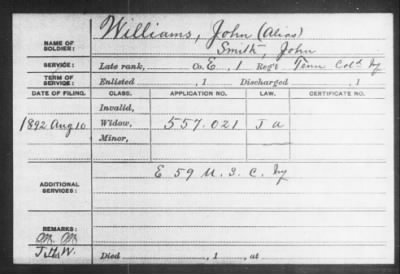 Williams, John (Alias)
NAME OF SOLDIER: Smith, John
SERVICE: Late rank, Co. E, 1 Reg't Tenn Cold Inf
TERM OF SERVICE: Enlisted , 1 Discharged , 1
DATE OF FILING. CLASS. APPLICATION NO. LAW. CERTIFICATE NO.
Invalid,
1892 Aug 10 Widow, 557.021 J a
Minor,
E 59 U.S.C. Inf
ADDITIONAL SERVICES:
REMARKS:
Died , 1 , at